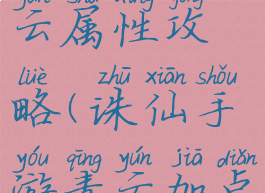 yún shǔ xìng gōng
云属性攻
lüè zhū xiān shǒu
略(诛仙手
yóu qīng yún jiā diǎn
游青云加点